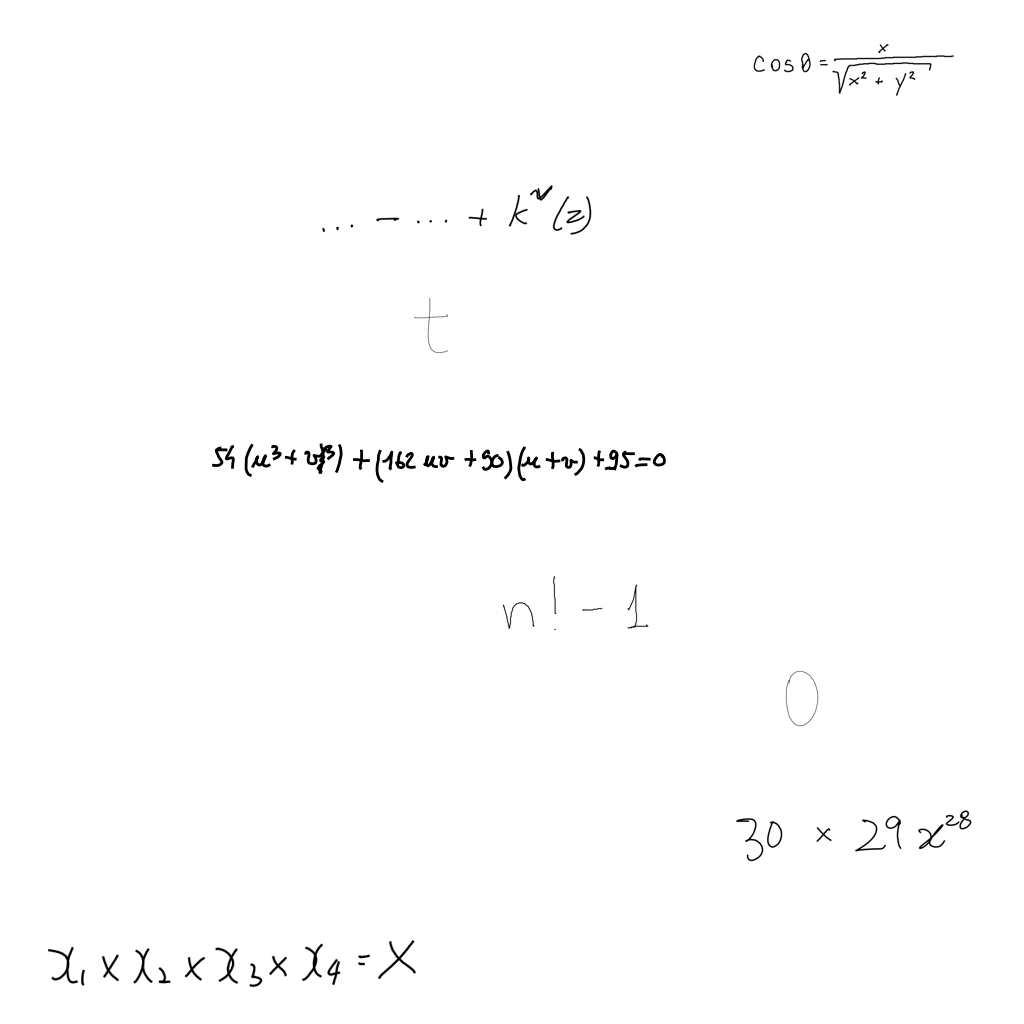 cos θ = x / √(x² + y²)
... − ... + k^ν (z)
t
54 (u³ + v³) + (162 uv + 90)(u + v) + 95 = 0
n! − 1
0
30 × 29 x²⁸
x₁ × x₂ × x₃ × x₄ = X